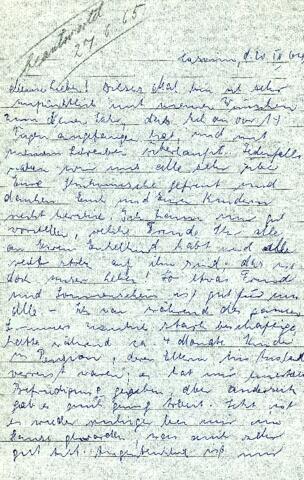 beantwortet
27. 6. 65
d. 20. IX 64
Meine Lieben! Dieses Mal bin ich sehr
unpünktlich mit meinen Wünschen
zum Neuen Jahr, das schon vor 14
Tagen angefangen hat, und mit
meinem Schreiben überhaupt. Jedenfalls
haben wir uns alle sehr über
Eure Glückwünsche gefreut und
danken Euch und Euren Kindern
recht herzlich. Ich kann mir gut
vorstellen, welche Freude Ihr alle
an Eurem Enkelkind habt und alle
recht stolz auf ihn seid: das ist
doch unser Leben! So etwas Freude
und Sonnenschein ist gut für uns
alle. - Ich war während des ganzen
Sommers nämlich stark beschäftigt,
hatte während ca 4 Monate Kinder
in Pension, deren Eltern im Ausland
verreist waren; es hat mir
Befriedigung gegeben, aber anderseits
gab es auch genug Arbeit. Jetzt ist
es wieder ruhiger bei mir im
Hause geworden, was auch sehr
gut tut. Augenblicklich ist mir